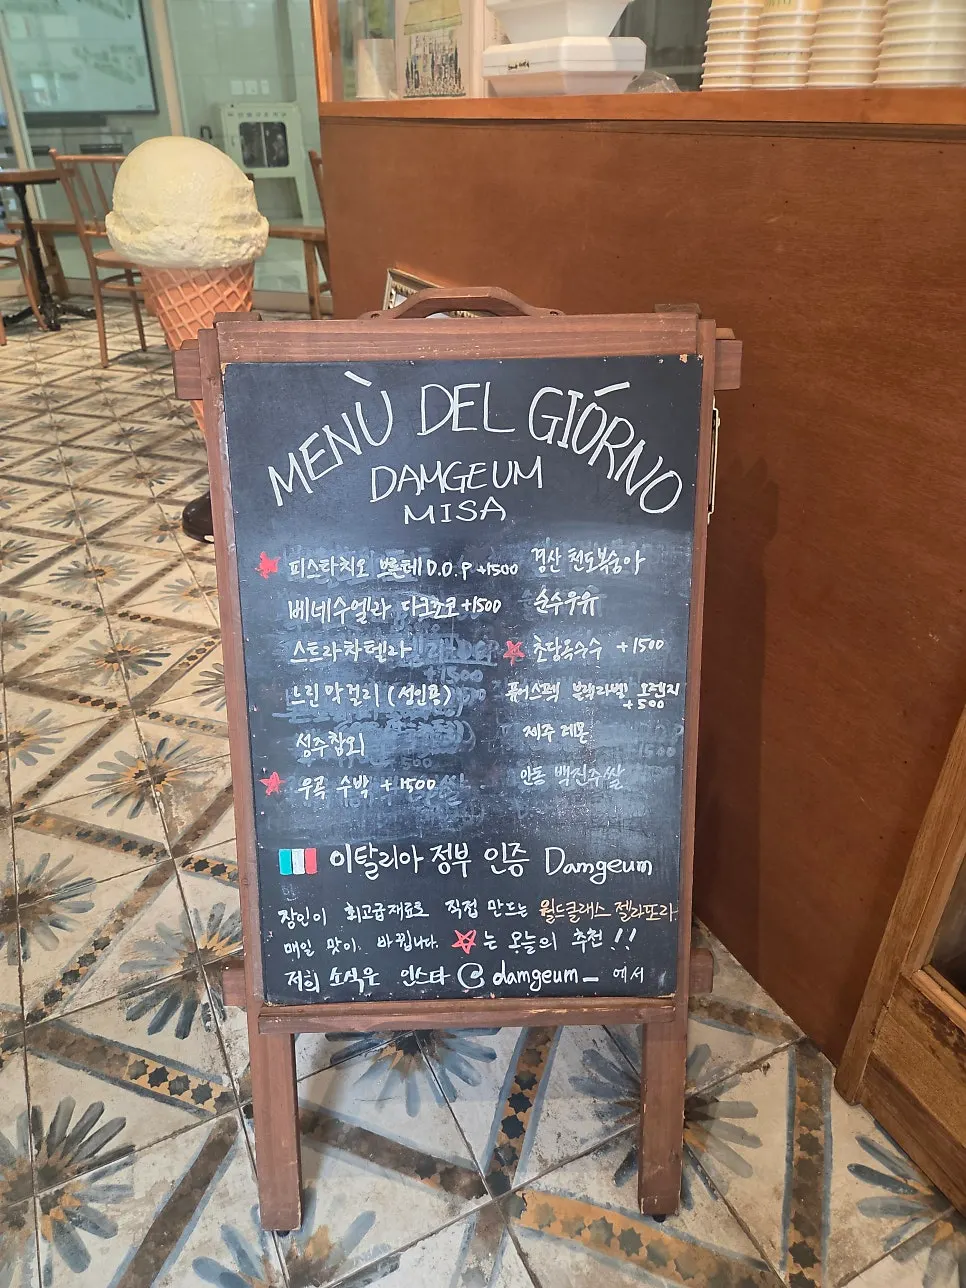 MENÙ DEL GIÓRNO
DAMGEUM
MISA
피스타치오 브론테 D.O.P +1500
베네수엘라 다크쵸코 +1500
스트라차텔라
느린막걸리 (성인용)
성주참외
우곡 수박 +1500
경산 천도복숭아
순수우유
초당옥수수 +1500
퓨어스펙 블랙라벨 오렌지
+500
제주 레몬
안동 백진주쌀
이탈리아 정부 인증 Damgeum
장인이 최고급재료로 직접 만드는 월드클래스 젤라또라
매일 맛이 바뀝니다. ☆는 오늘의 추천!!
저희 소식은 인스타 @damgeum_ 에서